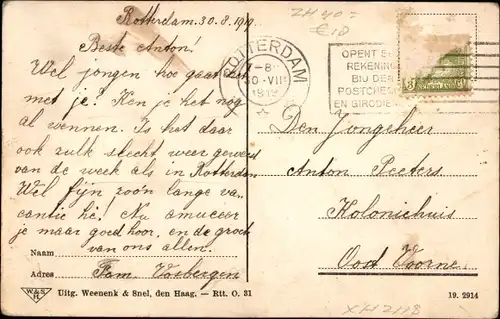 Rotterdam. 30.8.19
Beste Anton!
Wel jongen hoe gaat het
met je? Ken je het nog
al wennen. Is het daar
ook zulk slecht weer geweest
van de week als in Rotterdam
Wel fijn zoo'n lange va-
cantie hè! Nu amuseer
je maar goed hoor, en de groet
van ons allen.
Naam
Adres Fam. Voebergen
W&S
H
Uitg. Weenenk & Snel, den Haag. — Rtt. O. 31
ZH 40:
€10
ROTTERDAM
OPENT E
REKENING
BIJ DEN
POSTCHE
EN GIRODIE
Den Jongeheer
Anton Peeters.
Koloniehuis
Oost Voorne.
19. 2914
XH2H8